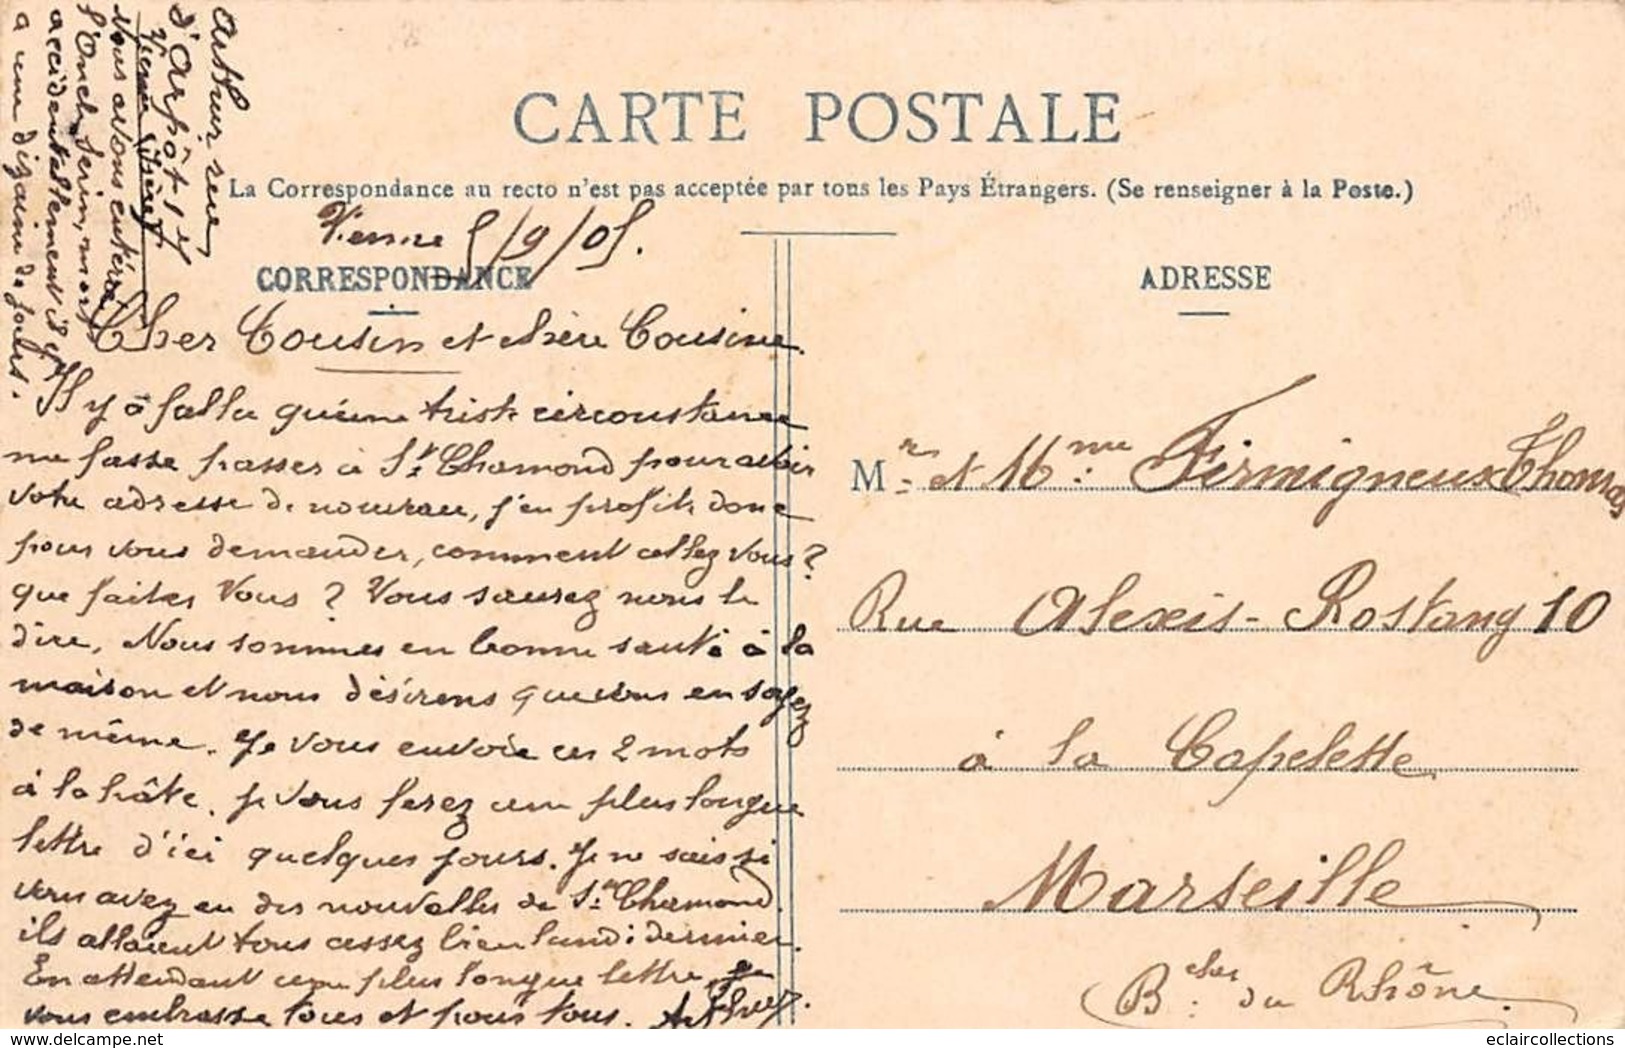 CARTE POSTALE
La Correspondance au recto n'est pas acceptée par tous les Pays Étrangers. (Se renseigner à la Poste.)
Vienne 5/9/05.
CORRESPONDANCE
Cher Cousin et chère Cousine.
Il y a fallu qu'une triste circonstance
me fasse passer à St Chamond pour avoir
votre adresse de nouveau, j'en profite donc
pour vous demander, comment allez vous ?
que faites vous ? Vous saurez nous le
dire. Nous sommes en bonne santé à la
maison et nous désirons que vous en soyez
de même. Je vous envoie ces 2 mots
à la hâte. je vous ferez une plus longue
lettre d'ici quelques jours. Je ne sais si
vous avez eu des nouvelles de St Chamond.
ils allaient tous assez bien lundi dernier.
En attendant une plus longue lettre, je
vous embrasse tous et pour tous. Arthur.
Arthur rue
d'Arpôt 17
Vienne Isère
Nous avons entérré
l'Oncle mort
accidentellement il y
a une dizaine de jours.
ADRESSE
Mr et Mme Firmigneux Thomas
Rue Alexis-Rostang 10
à la Capelette
Marseille
(Bches du Rhône.)
eclaircollections